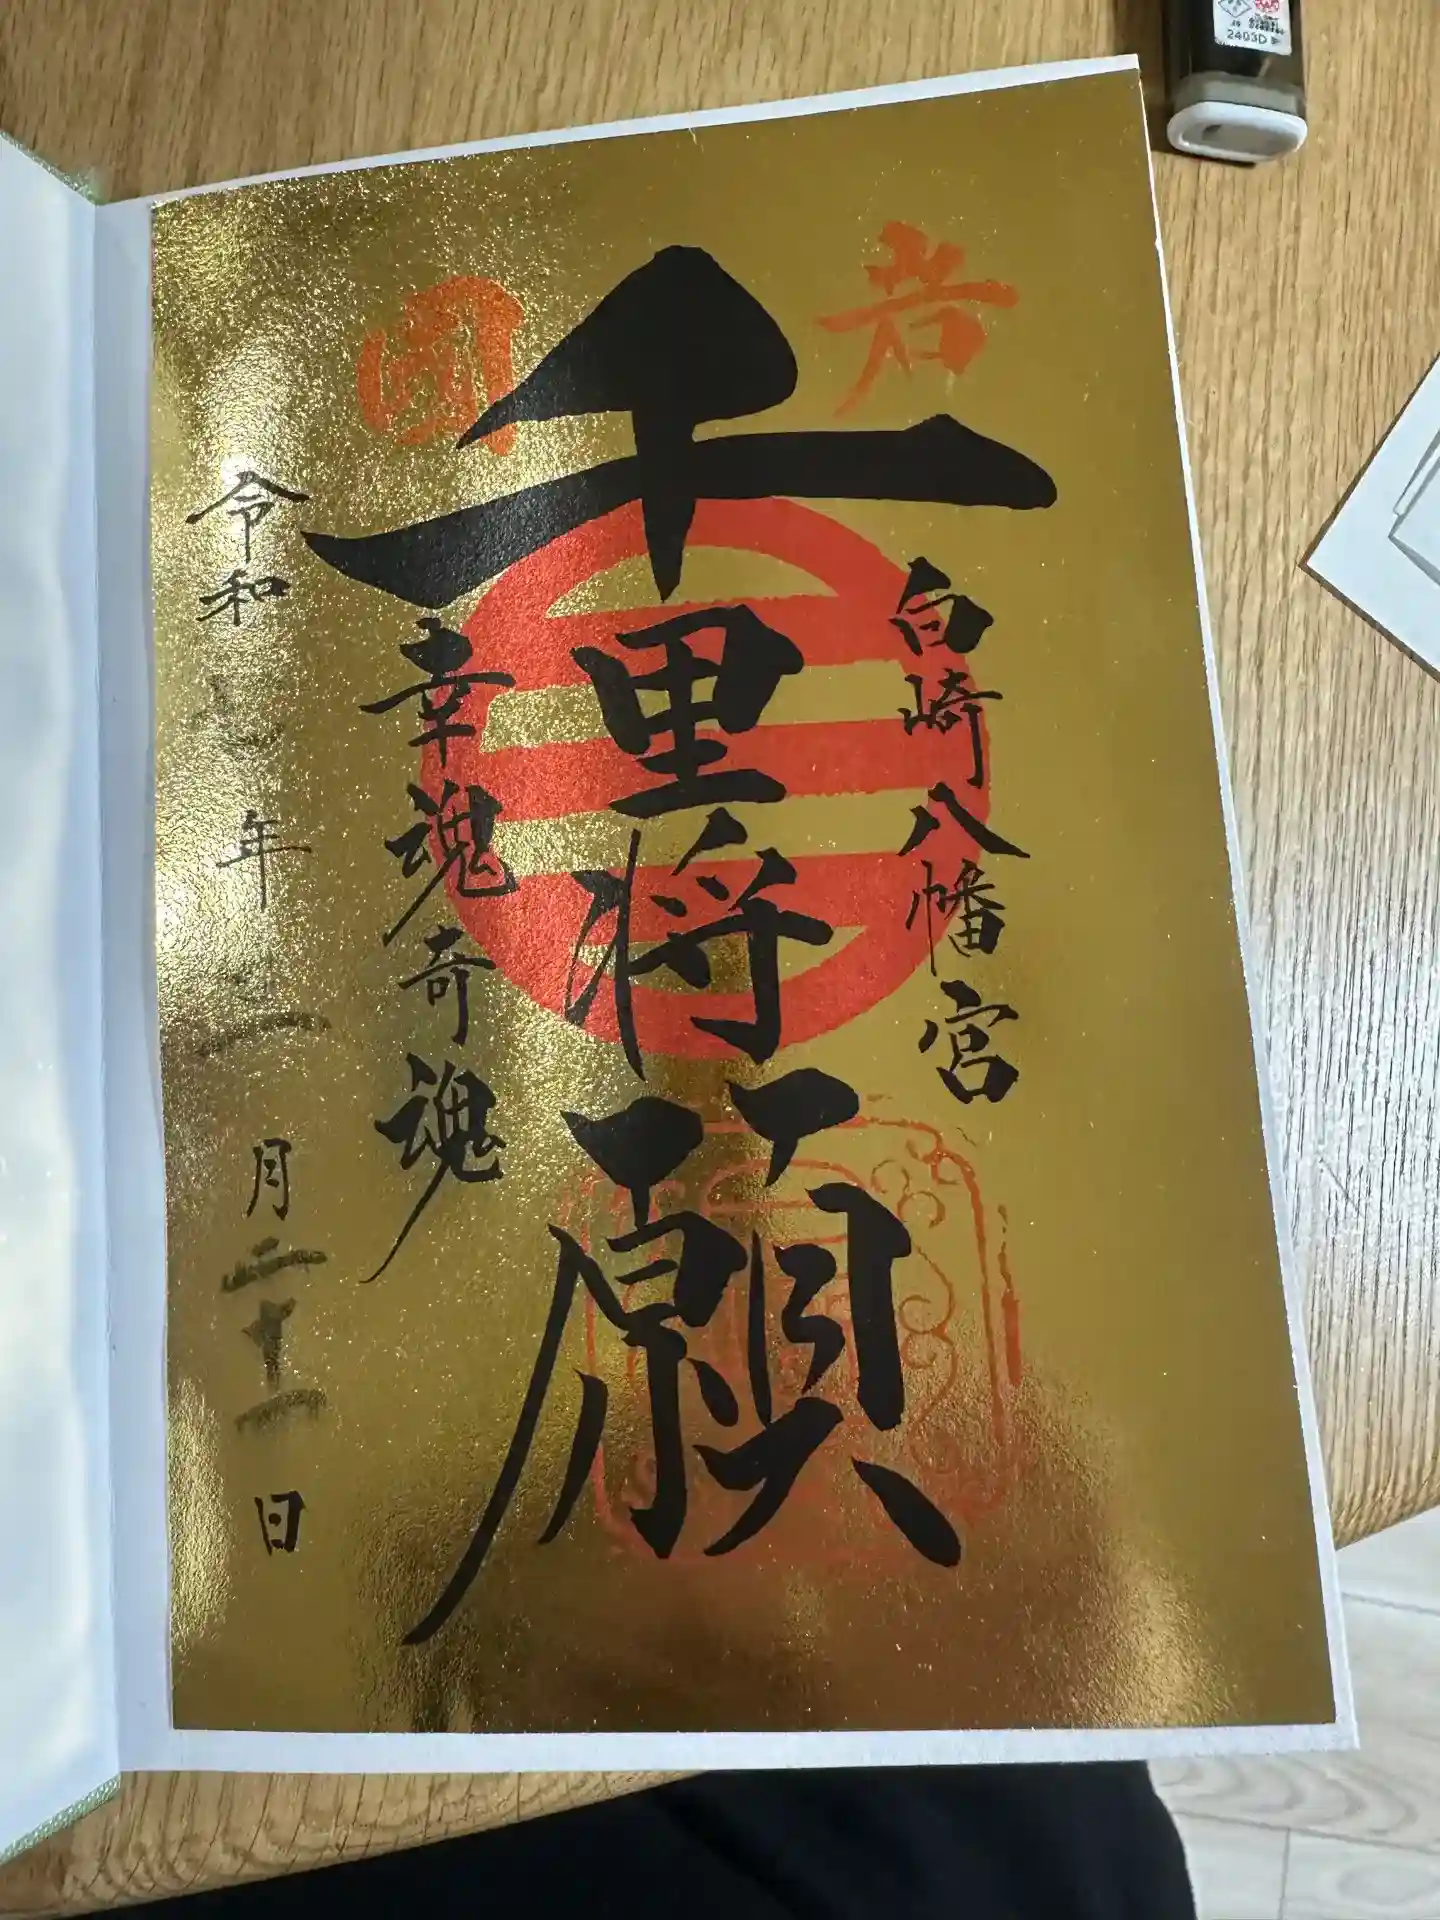 岩
国
白崎八幡宮
千里将願
幸魂奇魂
令和 年 月二十二日
2403D